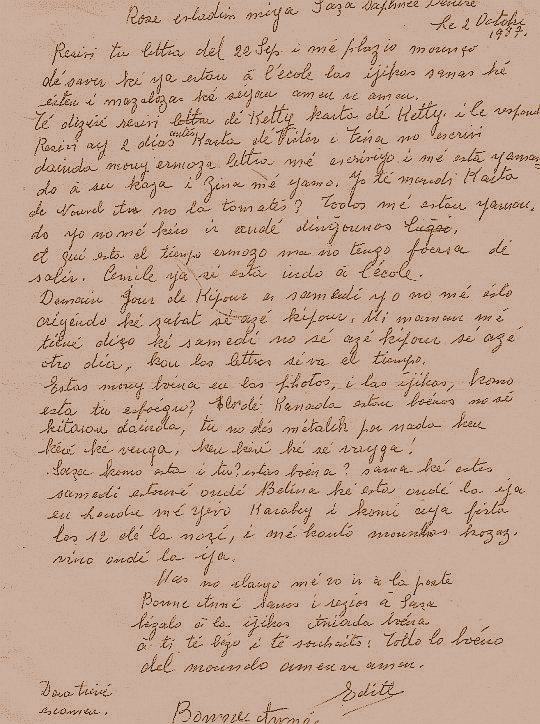 Rose estadim miya Saza Daphnée Denise
Le 2 Octobre
1987.
Resivi tu lettra del 22 Sep i mé plazio mounço
dé saver ké ya estan à l'école las ijikas sanas ké
esten i mazalozas ké seyan amen ve amen.
Té dizire resivi de Ketty karta dé Ketty, i le respond
Resivi ay 2 dias antes Karta dé Victor i Tina no escrivi
dainda mouy ermoza lettra mé escriviyo i mé esta yaman
do à su kaza i Zina mé yamo. Yo té mandi Karta
de Nouvel An no la tomates? Todos mé estan yaman-
do yo no mé kero ir andé dingounos lugar,
el qué esta el tiempo ermozo ma no tengo foersa dé
salir. Cemile ya sé esta indo à l'école.
Domain Jour de Kipour es samedi yo no mé esto
créyendo ké sabat sé azé kipour. Mi maman mé
tiene dizo ké samedi no sé azé kipour se azé
otro dia, kon las lettras sé va el tiempo.
Estas mouy boena en las photos, i las ijikas, komo
esta tu esfoegro? Los dé Kanada estan boenos no sé
kitaron dainda, tu no dés métalik por nada ken
kéré ké venga, ken kéré ké sé vayga!
Saza komo esta i tu? estas boena? sana ké estés
samedi estouvé ondé Belina ké esta ondé la ija
en Londra mé yevo Karakoy i komi asta
las 12 dé la noze, i mé kontó mounchas kozas.
vino ondé la ija.
Mas no alargo mé vo ir à la poste
Bonne Anné sanos i rezios à Saza
bézalo à la ijikas Aniada boena
à ti té bézo i té souhaite Todo lo boeno
del moundo amen ve amen.
Edith
Dora tiene
escomer.
Bonne Anné